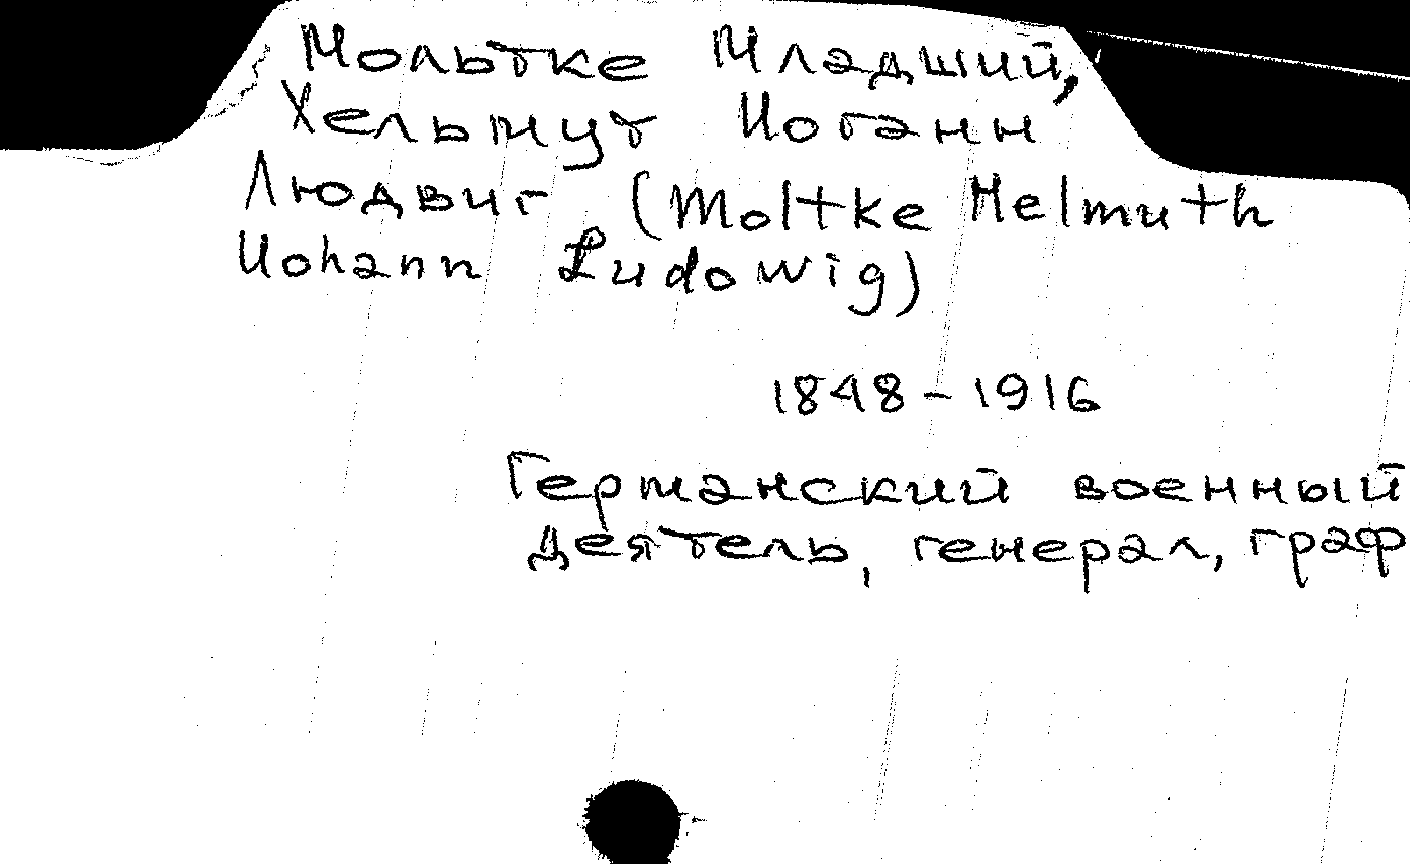 Мольтке Младший,
Хельмут Иоганн
Людвиг (Moltke Helmuth
Иohann Ludowig)
1848-1916
Германский военный
деятель, генерал, граф